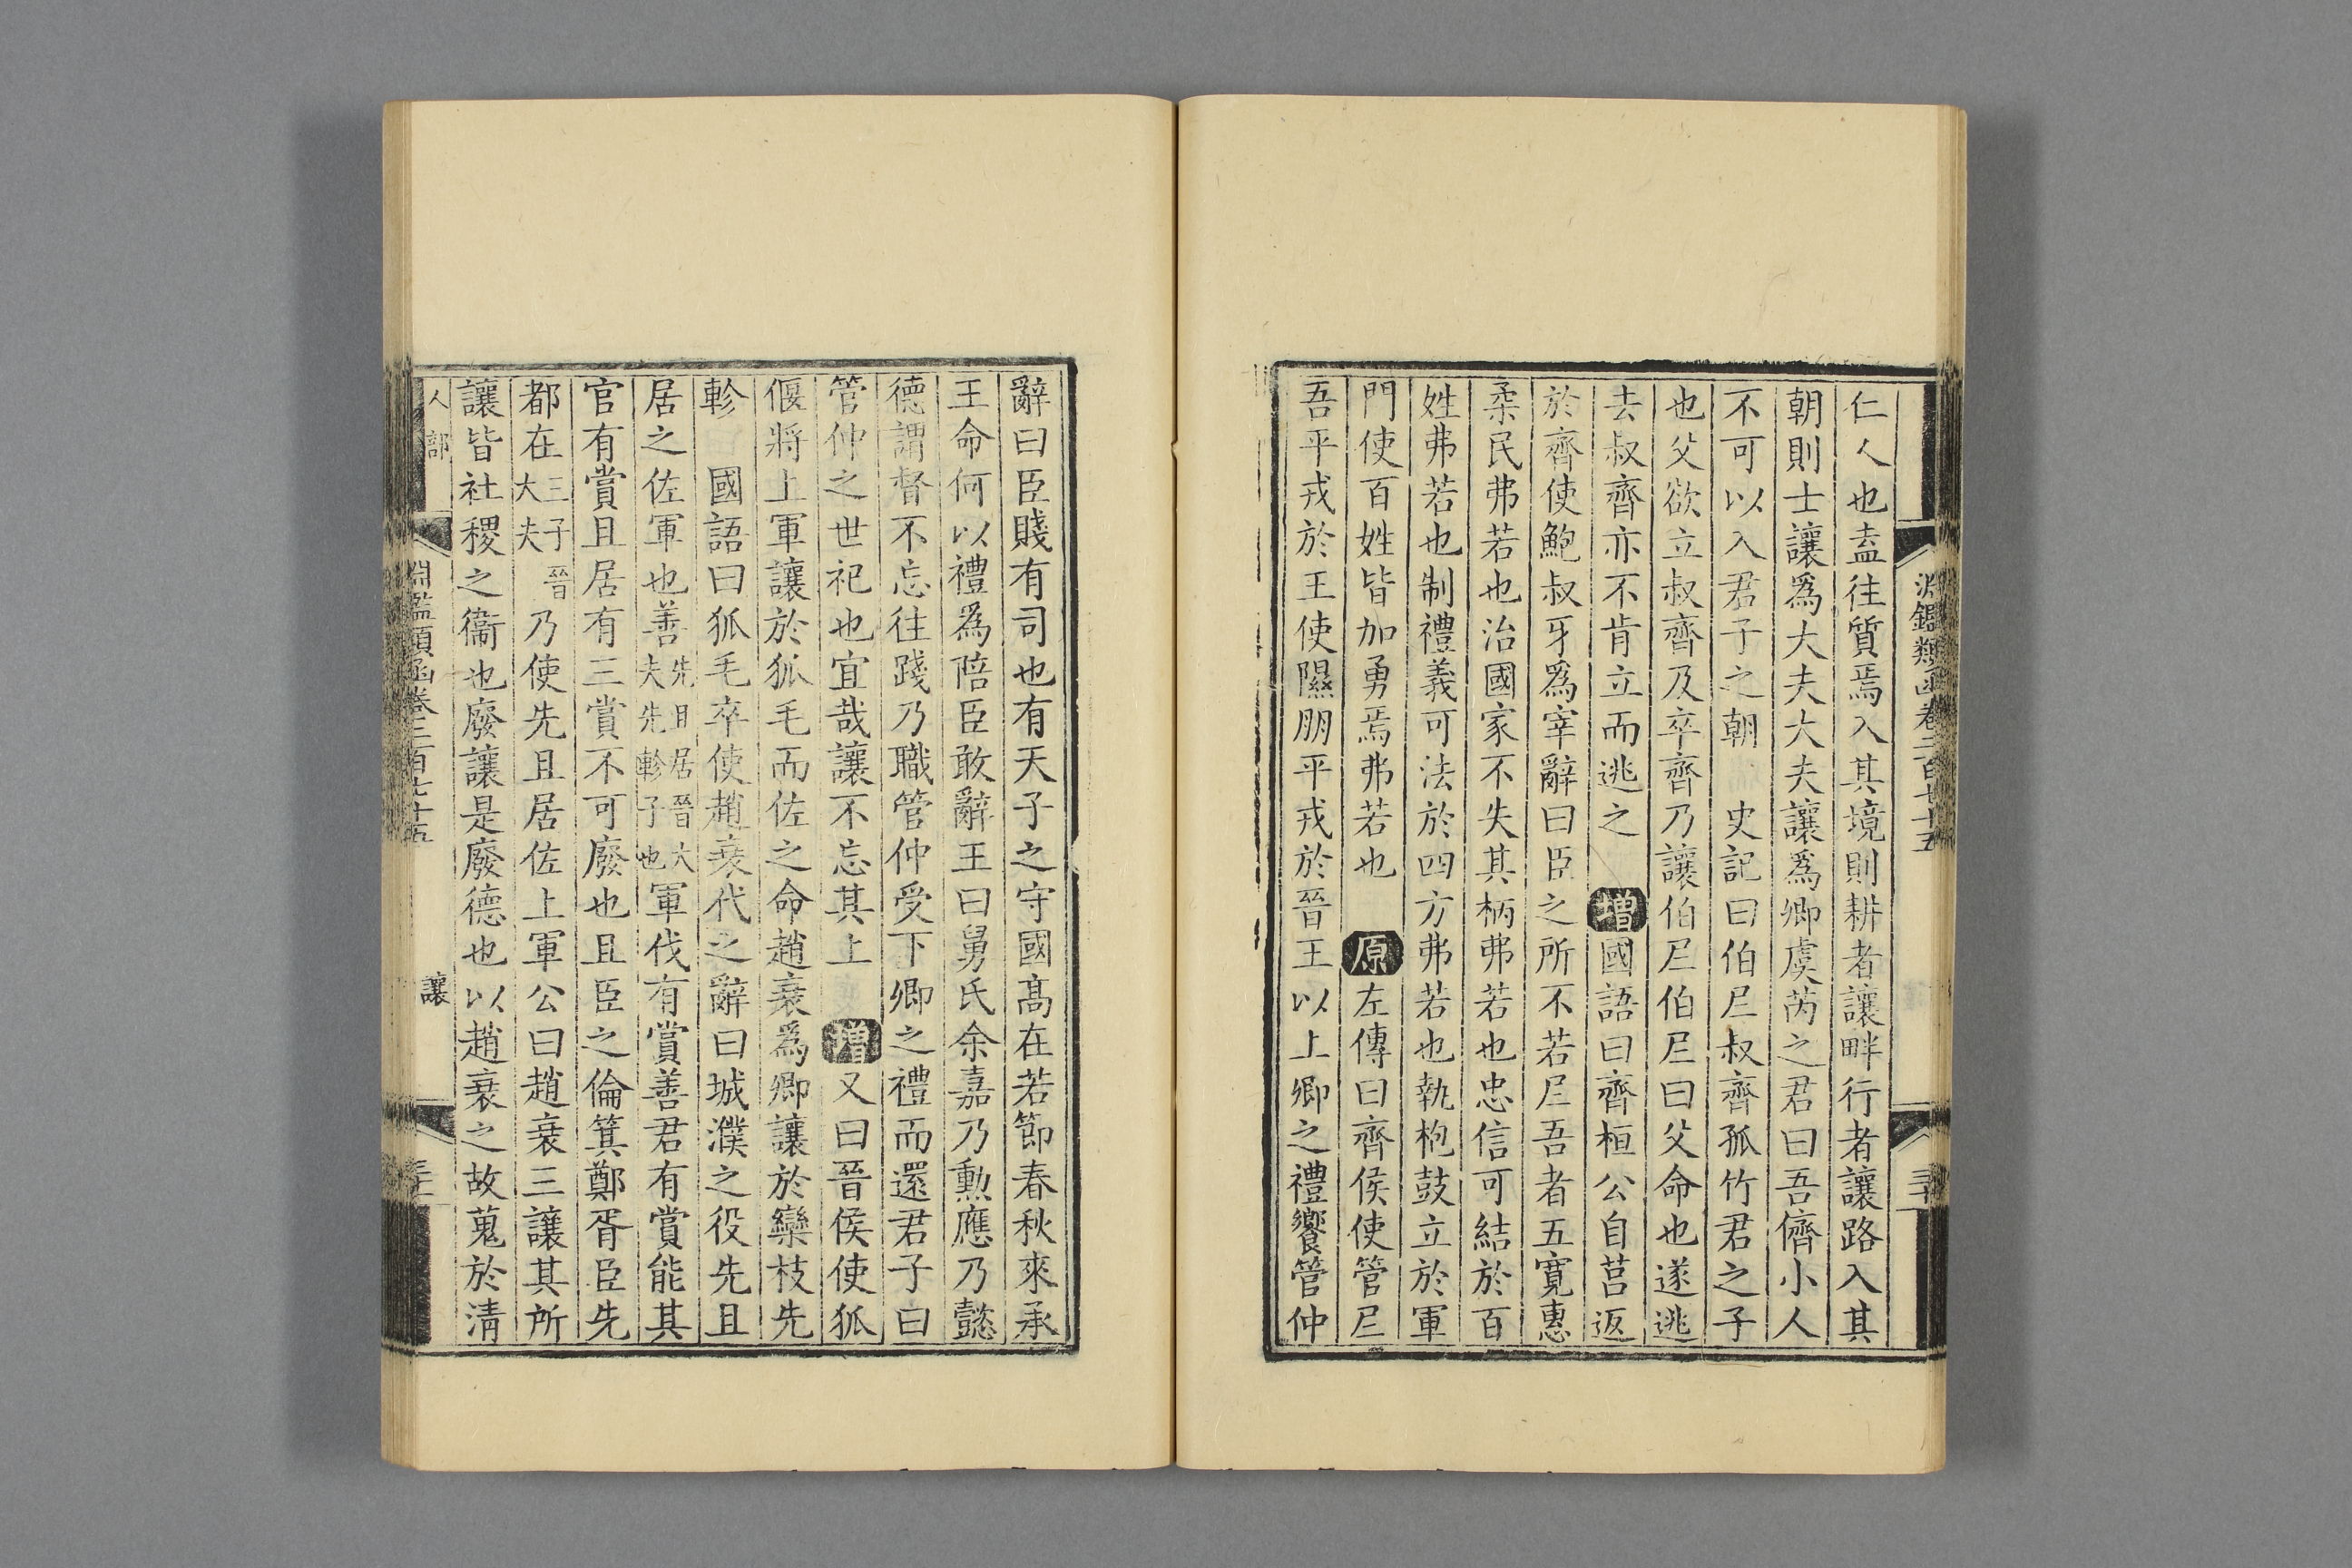 仁人也盍往質焉入其境則耕者讓畔行者讓路入其
朝則士讓爲大夫大夫讓爲卿虞芮之君曰吾儕小人
不可以入君子之朝 史記曰伯𡰥叔齊孤竹君之子
也父欲立叔齊及卒齊乃讓伯𡰥伯𡰥曰父命也遂逃
去叔齊亦不肯立而逃之 增國語曰齊桓公自莒返
於齊使鮑叔牙爲宰辭曰臣之所不若𡰥吾者五寬惠
柔民弗若也治國家不失其柄弗若也忠信可結於百
姓弗若也制禮義可法於四方弗若也執枹鼓立於軍
門使百姓皆加勇焉弗若也 原左傳曰齊侯使管𡰥
吾平戎於王使隰朋平戎於晉王以上卿之禮饗管仲
淵鑑類函卷二百七十五
辭曰臣賤有司也有天子之守國高在若節春秋來承
王命何以禮爲陪臣敢辭王曰舅氏余嘉乃勲應乃懿
德謂督不忘往踐乃職管仲受下卿之禮而還君子曰
管仲之世祀也宜哉讓不忘其上 增又曰晉侯使狐
偃將上軍讓於狐毛而佐之命趙衰爲卿讓於欒枝先
軫 國語曰狐毛卒使趙衰代之辭曰城濮之役先且
居之佐軍也善先且居晉大夫先軫子也軍伐有賞善君有賞能其
官有賞且居有三賞不可廢也且臣之倫箕鄭胥臣先
都在三子晉大夫乃使先且居佐上軍公曰趙衰三讓其所
讓皆社稷之衞也廢讓是廢德也以趙衰之故蒐於清
人部
淵鑑類函卷二百七十五
讓